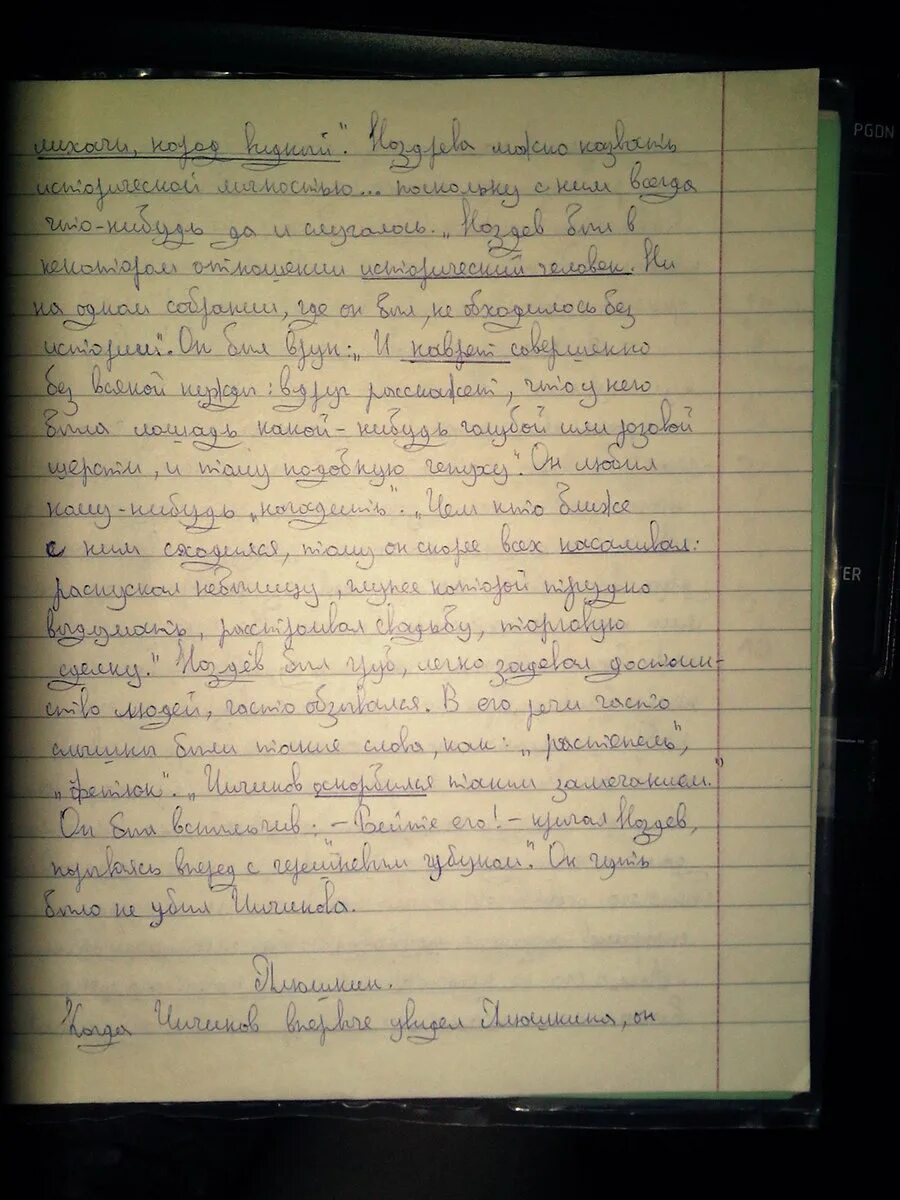 лихачи, народ видный". Ноздрева можно назвать
исторической личностью... поскольку с ним всегда
что-нибудь да и случалось. „Ноздев был в
некотором отношении исторический человек. Ни
на одном собрании, где он был, не обходилось без
истории". Он был врун: „И наврет совершенно
без всякой нужды: вдруг расскажет, что у него
была лошадь какой-нибудь голубой или розовой
шерсти, и тому подобную чепуху". Он любил
кому-нибудь „нагадить". „Чем кто ближе
с ним сходился, тому он скорее всех насаливал:
распускал небылицу, глупее которой трудно
выдумать, расстроивал свадьбу, торговую
сделку." Ноздёв был груб, легко задевал достоин-
ство людей, часто обзывался. В его речи часто
слышны были такие слова, как: „растепель",
„фетюк". „Чичиков оскорбился таким замечанием."
Он был вспыльчив: „—Бейте его! – кричал Ноздев,
порываясь вперед с черешневым чубуком". Он чуть
было не убил Чичикова.
Плюшкин.
"Когда Чичиков впервые увидел Плюшкина, он
PGDN
TER